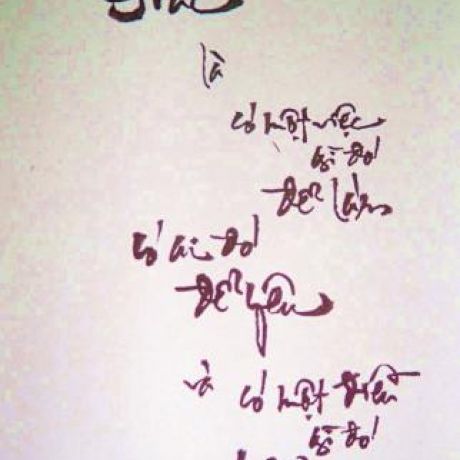 là
có một việc
gì đó
để làm
có ai đó
để yêu
và có một điều
gì đó